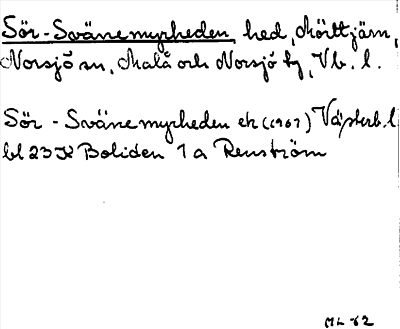 Sör-Svänemyrheden, hed, Mörttjärn,
Norsjö sn, Malå och Norsjö tg, Vb. l.
Sör - Svänemyrheden ek (1961) Västerb. l
bl 23 K Boliden 1 a Renström
ML -62